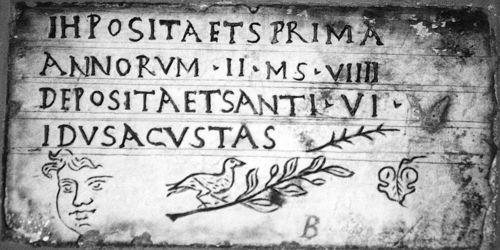 IHPOSITAETSPRIMA
ANNORVM · II · MS · VIIII
DEPOSITAETSANTI · VI ·
IDVSACVSTAS
B